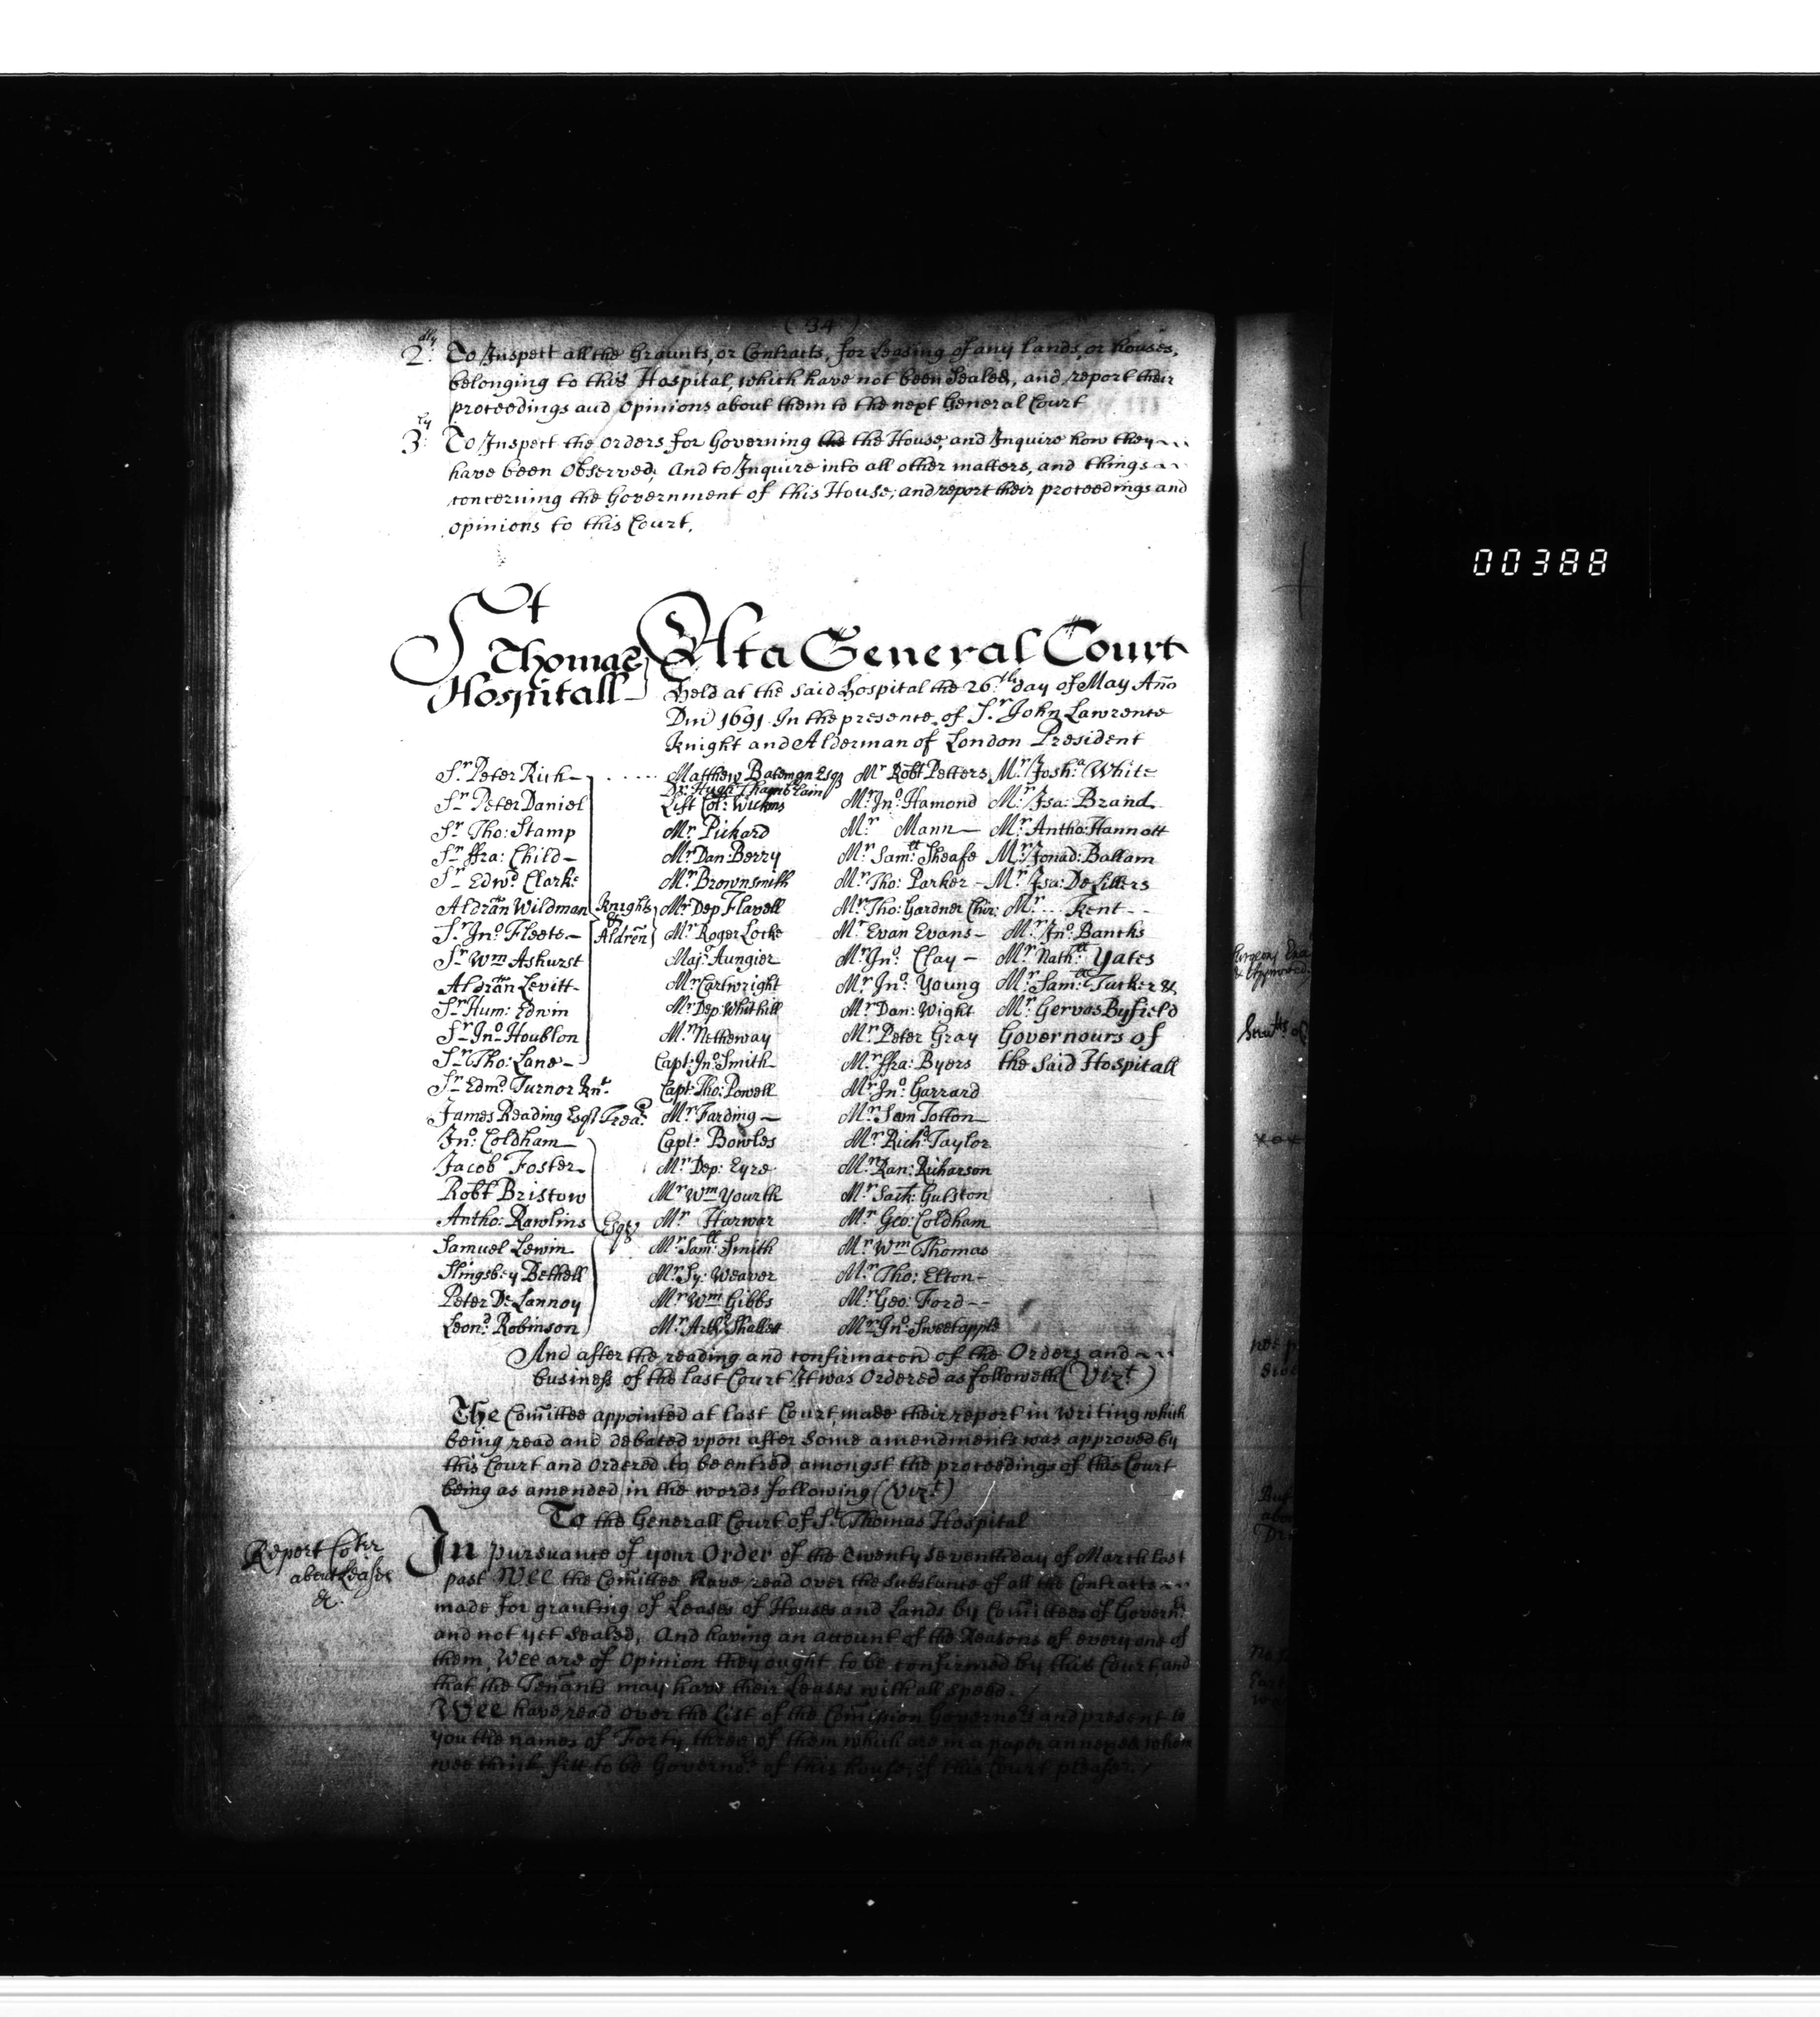 (34)
2dly To Inspect all the Graunts, or Contracts, for Leasing of any lands, or houses,
belonging to this Hospital, which have not been Sealed, and report their
proceedings and Opinions about them to the next General Court
3ly: To Inspect the Orders for Governing the the House, and Inquire how they
have been Observed; And to Inquire into all other matters, and things
concerning the Government of this House; and report their proceedings and
opinions to this Court.
St Thomas Hospitall
At a General Court
Held at the said Hospital the 26th day of May Año
Dni 1691 In the presence of Sr. John Lawrence
Knight and Alderman of London President
Sr. Peter Rich Matthew Bateman Esqr Mr Robt Petters Mr. Josha: White
Dr: Hugh Chamblain
Sr Peter Daniel Lift Col: Wickins Mr. Jno: Hamond Mr. Isa: Brand
Sr Tho: Stamp Mr Pickard Mr Mann Mr. Antho: Hannott
Sr ffra: Child Mr. Dan: Berry Mr Samll: Sheafe Mr. Jonad: Ballam
Sr Edwd. Clarke Mr. Brownsmith Mr. Tho: Parker Mr. Isa: De Lillers
Aldrañ Wildman Knights & Aldreñ Mr. Dep Flavell Mr. Tho: Gardner Chir: Mr. Kent
Sr. Jno: Fleete Mr. Roger Locke Mr. Evan Evans Mr. Jno: Bancks
Sr Wm Ashurst Majr. Aungier Mr. Jno: Clay Mr. Nathll: Yates
Aldrañ Levitt Mr. Cartwright Mr. Jno: Young Mr. Samll: Tucker &
Sr Hum: Edwin Mr. Dep. Whithill Mr. Dan: Wight Mr. Gervas Byfield
Sr Jno: Houblon Mr. Netheway Mr. Peter Gray Governours of
Sr Tho: Lane Capt: Jno: Smith Mr. ffra: Byers the Said Hospitall
Sr Edmd. Turnor Knt. Capt: Tho: Powell Mr. Jno: Garrard
James Reading Esqr Trear. Mr. Farding Mr. Sam Totton
Jno: Coldham Capt: Bowles Mr. Richd: Taylor
Jacob Foster Mr. Dep: Eyre Mr. Ran: Richarson
Robt Bristow Mr Wm Yourth Mr. Sack: Gulston
Antho: Rawlins Esqrs Mr Harwar Mr. Geo: Coldham
Samuel Lewin Mr. Samll: Smith Mr. Wm Thomas
Slingsbey Bethell Mr. Sy: Weaver Mr. Tho: Elton
Peter De Lannoy Mr Wm Gibbs Mr. Geo: Ford
Leond. Robinson Mr. Arth: Shallett Mr. Jno: Sweetapple
And after the reading and confirmacon of the Orders and
business of the last Court It was Ordered as followeth (Vizt.)
The Com̃ittee appointed at last Court, made their report in writing which
being read and debated vpon after some amendments was approved by
this Court and Ordered to be entred amongst the proceedings of this Court
being as amended in the words following (Vizt)
To the Generall Court of St. Thomas Hospital
Report
about Leases
&c.
In pursuance of your Order of the twenty seventh day of March last
past Wee the Com̃ittee have read over the substance of all the Contracts
made for granting of Leases of Houses and Lands by Com̃ittees of Governrs.
and not yet Sealed, And having an account of the Reasons of every one of
them, Wee are of Opinion they ought to be confirmed by this Court, and
that the Tenants may have their Leases with all speed.
Wee have read over the List of the Com̃ission Governors and present to
you the names of Forty three of them which are in a paper annexed whom
wee think fitt to be Governors of this house, if this Court pleases.
00388